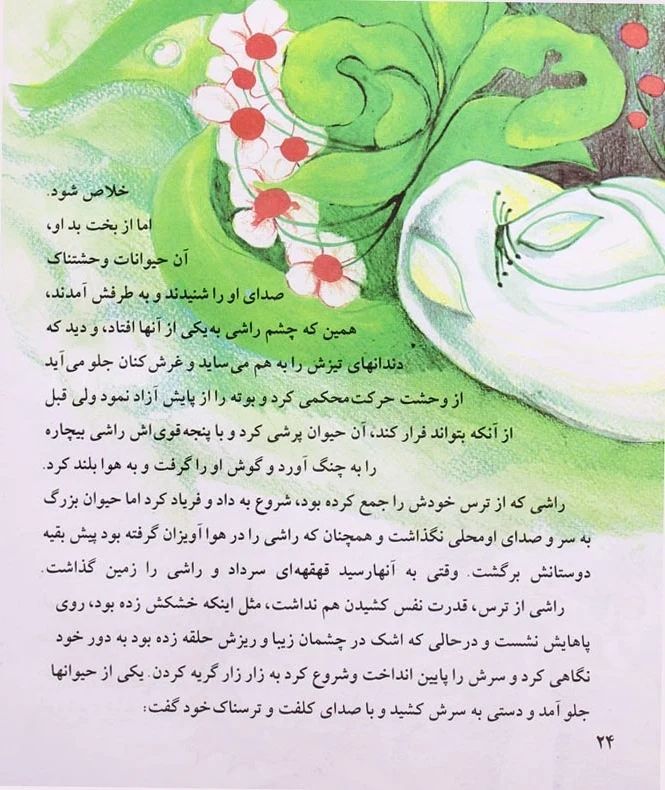 خلاص شود.
اما از بخت بد او،
آن حیوانات وحشتناک
صدای او را شنیدند و به طرفش آمدند،
همین که چشم راشی به‌یکی از آنها افتاد، و دید که
دندانهای تیزش را به هم می‌ساید و غرش‌کنان جلو می‌آید
از وحشت حرکت‌محکمی کرد و بوته را از پایش آزاد نمود ولی قبل
از آنکه بتواند فرار کند، آن حیوان پرشی کرد و با پنجه‌قوی‌اش راشی بیچاره
را به چنگ آورد و گوش او را گرفت و به هوا بلند کرد.
راشی که از ترس خودش را جمع کرده بود، شروع به داد و فریاد کرد اما حیوان بزرگ
به سر و صدای اومحلی نگذاشت و همچنان که راشی را در هوا آویزان گرفته بود پیش بقیه
دوستانش برگشت. وقتی به آنهارسید قهقهه‌ای سرداد و راشی را زمین گذاشت.
راشی از ترس، قدرت نفس کشیدن هم نداشت، مثل اینکه خشکش زده بود، روی
پاهایش نشست و درحالی که اشک در چشمان زیبا و ریزش حلقه زده بود به دور خود
نگاهی کرد و سرش را پایین انداخت وشروع کرد به زار زار گریه کردن. یکی از حیوانها
جلو آمد و دستی به سرش کشید و با صدای کلفت و ترسناک‌خود گفت:
۲۴